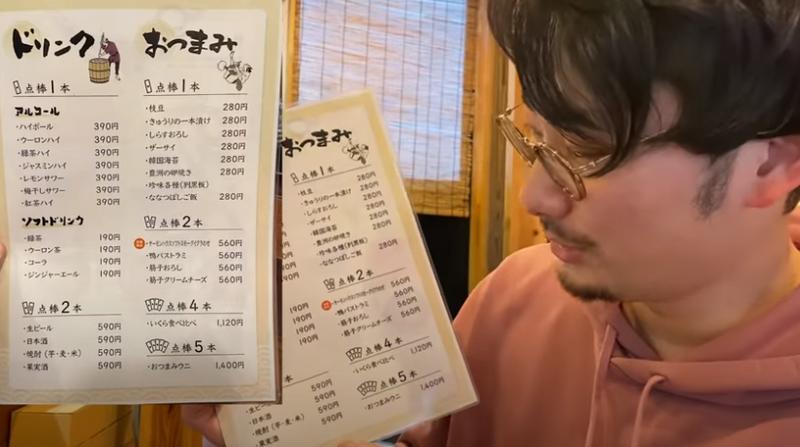 ドリンク
点棒1本
アルコール
・ハイボール 390円
・ウーロンハイ 390円
・緑茶ハイ 390円
・ジャスミンハイ 390円
・レモンサワー 390円
・梅干しサワー 390円
・紅茶ハイ 390円
ソフトドリンク
・緑茶 190円
・ウーロン茶 190円
・コーラ 190円
・ジンジャーエール 190円
点棒2本
・生ビール 590円
・日本酒 590円
・焼酎(芋・麦・米) 590円
・果実酒 590円
おつまみ
点棒1本
・枝豆 280円
・きゅうりの一本漬け 280円
・しらすおろし 280円
・ザーサイ 280円
・韓国海苔 280円
・豊洲の卵焼き 280円
・珍味各種(別黒板)
・ななつぼしご飯 280円
点棒2本
560円
・鴨パストラミ 560円
・筋子おろし 560円
・筋子クリームチーズ 560円
点棒4本
・いくら食べ比べ 1,120円
点棒5本
・おつまみウニ 1,400円
おつまみ
点棒1本
・枝豆 280円
・きゅうりの一本漬け 280円
・しらすおろし 280円
・ザーサイ 280円
・韓国海苔 280円
・豊洲の卵焼き 280円
・珍味各種(別黒板)
・ななつぼしご飯 280円
点棒2本
560円
・鴨パストラミ 560円
・筋子おろし 560円
・筋子クリームチーズ 560円
点棒4本
・いくら食べ比べ 1,120円
点棒5本
・おつまみウニ 1,400円
190円
190円
190円
190円
本
・生ビー 590円
・日本酒 590円
・焼酎(芋・麦・米) 590円
・果実酒 590円